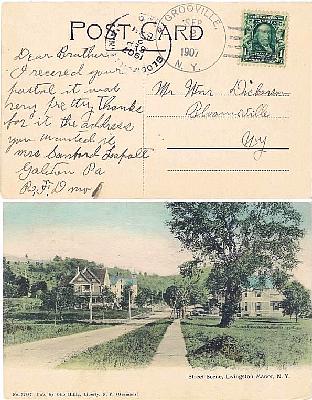 POST CARD
GROOVILLE,
SEP
1907
N. Y.
Dear Brother
I receved your
postal it was
very pretty thanks
for it the address
you wanted is
mrs Sanford
Galeton Pa
R. F. D no 1
Mr Wm Dickerson
Bloomville
NY
Street Scene, Livingston Manor, N. Y.
Pub. by Otto Hillig, Liberty, N. Y. (Germany)